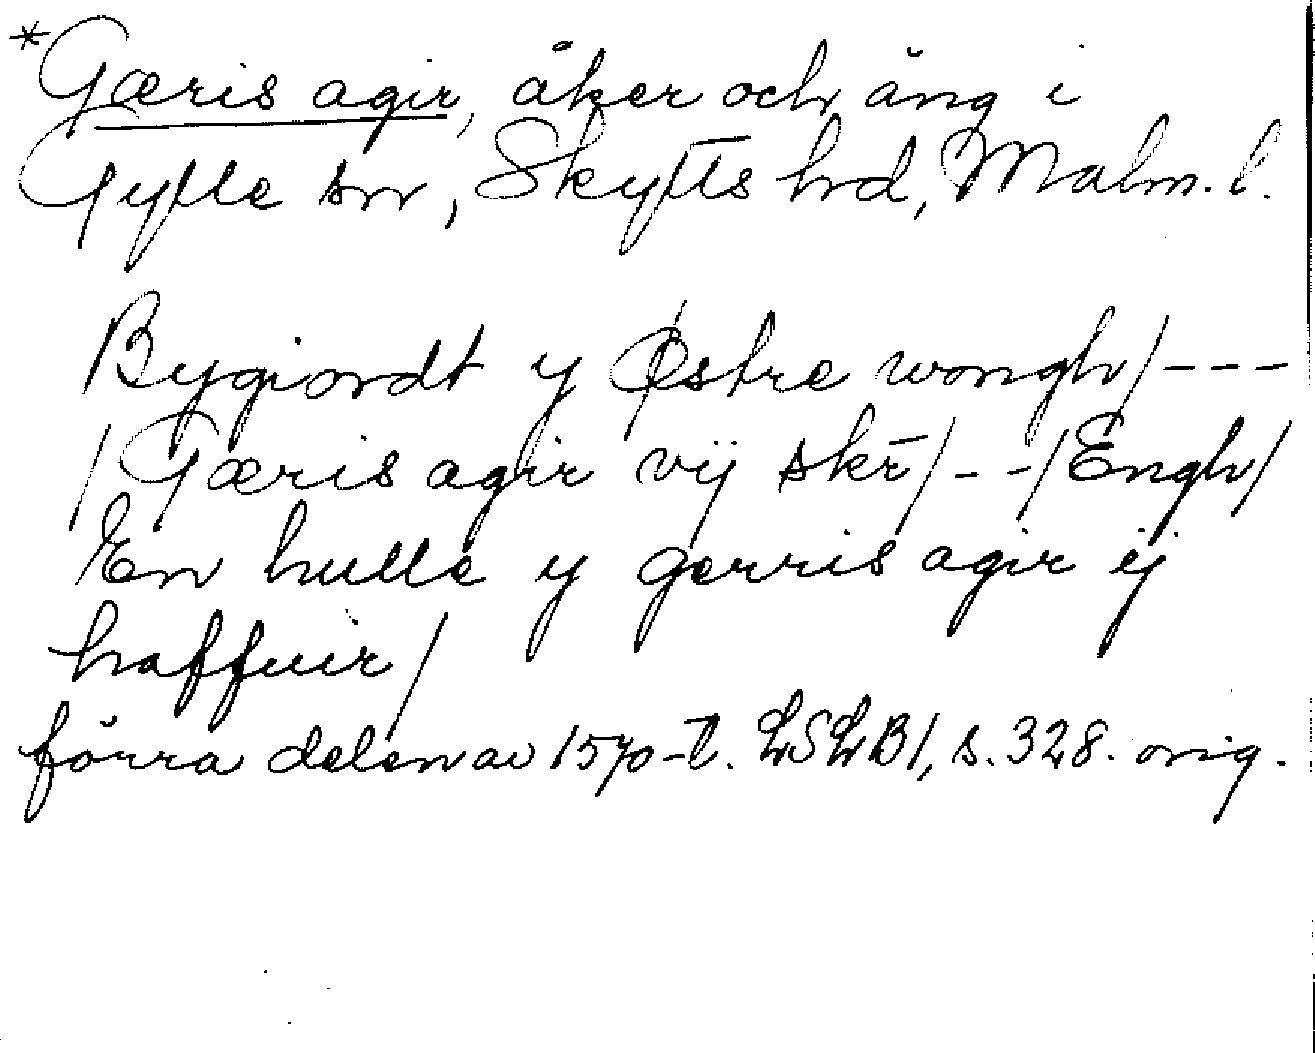 *Gæris agir, åker och äng i
Gylle sn, Skytts hd, Malm. l.
Bygiordt y Østre wongh/---
/Gæris agir vij skr̄/--/Engh/
En hulle y gerris agir ij
haffuir/
förra delen av 1570-t. LSLB1, s. 328. orig.